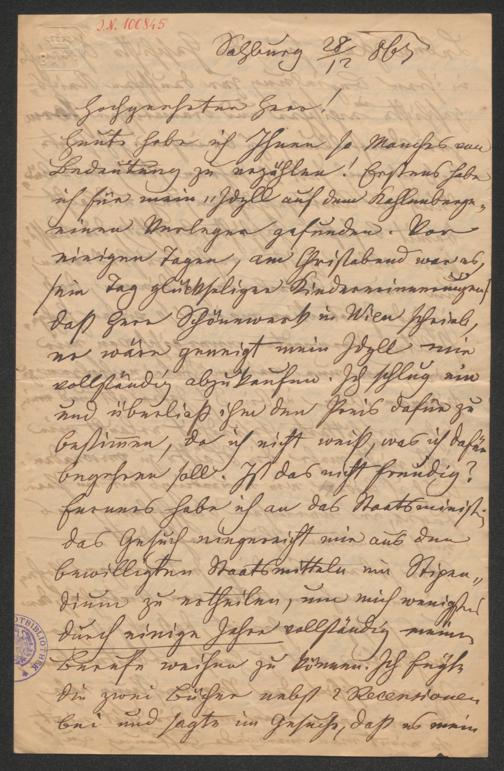 I.N. 100845
Salzburg 28/12 865
Hochgeehrter Herr!
Heute habe ich Ihnen so Manches von
Bedeutung zu erzählen! Erstens habe
ich für mein „Idyll auf dem Kahlenberge"
einen Verleger gefunden. Vor
einigen Tagen, am Christabend war es,
sein Tag glückseliger Kindererinnerungen
daß Herr Schönewerk in Wien schrieb,
er wäre geneigt mein Idyll mir
vollständig abzukaufen. Ich schlug ein
und überließ ihm den Preis dafür zu
bestimmen, da ich nicht weiß, was ich dafür
begehren soll. Ist das nicht freudig?
Ferners habe ich an das Staatsminist:
das Gesuch eingereicht mir aus den
bewilligten Staatsmitteln ein Stipen„
dium zu ertheilen, um mich wenigstens
durch einige Jahre vollständig meinem
Berufe weihen zu können. Ich fügte
die zwei Bücher nebst 2 Recensionen
bei und sagte im Gesuche, daß es mein